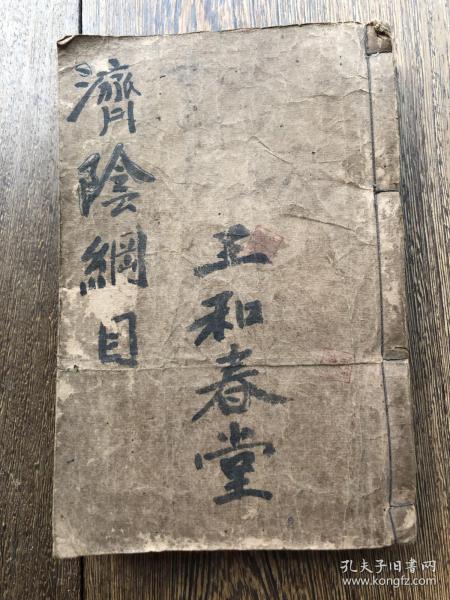 濟陰綱目
王和春堂
孔夫子旧书网
www.kongfz.com